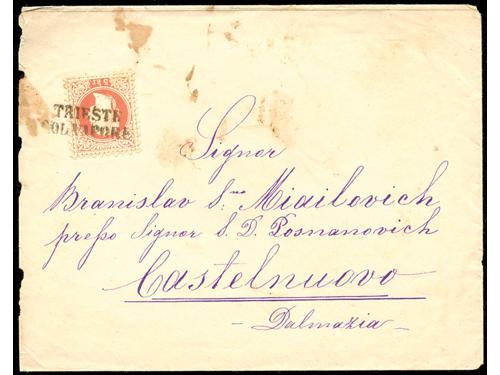 5 kr
TRIESTE
COL VAPORE
Signor
Branislav d.mo Miailovich
presso Signor S. D. Posnanovich
Castelnuovo
- Dalmazia -